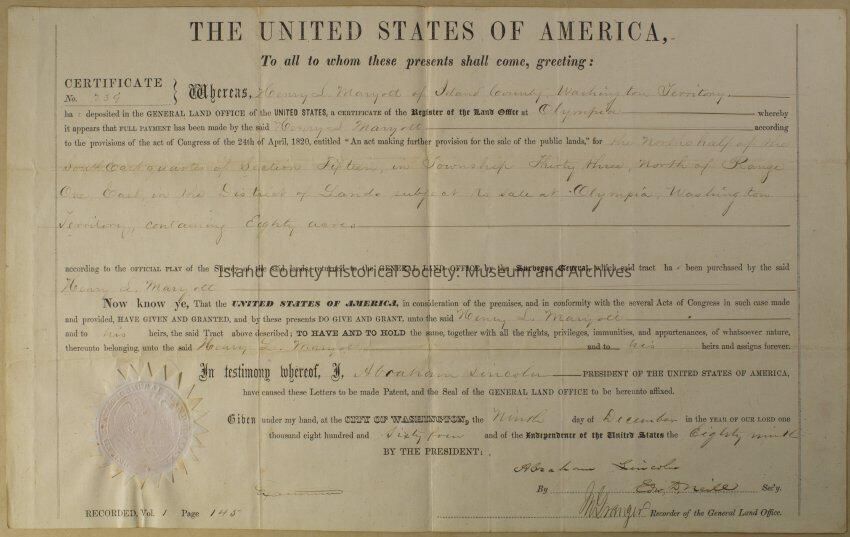 THE UNITED STATES OF AMERICA,
To all to whom these presents shall come, greeting:
CERTIFICATE
No. 239
Whereas, Henry L. Maryott of Island County, Washington Territory
ha deposited in the GENERAL LAND OFFICE of the UNITED STATES, a CERTIFICATE of the Register of the Land Office at Olympia whereby
it appears that FULL PAYMENT has been made by the said Henry L. Maryott according
to the provisions of the act of Congress of the 24th of April, 1820, entitled "An act making further provision for the sale of the public lands," for the North half of the
South East quarter of Section Fifteen, in Township Thirty three, North of Range
One, East, in the District of Lands subject to sale at Olympia, Washington
Territory, containing Eighty acres
according to the OFFICIAL PLAT of the Survey of the said lands returned to the GENERAL LAND OFFICE by the Surveyor General, which said tract ha been purchased by the said
Island County Historical Society. Museum and Archives
Henry L. Maryott
Now know ye, That the UNITED STATES OF AMERICA, in consideration of the premises, and in conformity with the several Acts of Congress in such case made
and provided, HAVE GIVEN AND GRANTED, and by these presents DO GIVE AND GRANT, unto the said Henry L. Maryott
and to his heirs, the said Tract above described; TO HAVE AND TO HOLD the same, together with all the rights, privileges, immunities, and appurtenances, of whatsoever nature,
thereunto belonging, unto the said Henry L. Maryott and to his heirs and assigns forever.
In testimony whereof, I, Abraham Lincoln PRESIDENT OF THE UNITED STATES OF AMERICA,
have caused these Letters to be made Patent, and the Seal of the GENERAL LAND OFFICE to be hereunto affixed.
Given under my hand, at the CITY OF WASHINGTON, the Ninth day of December in the YEAR OF OUR LORD one
thousand eight hundred and Sixty four and of the Independence of the United States the Eighty ninth
BY THE PRESIDENT:
Abraham Lincoln
By Edw. D. Neill Sec'y.
RECORDED, Vol. 1 Page 145
Granger Recorder of the General Land Office.